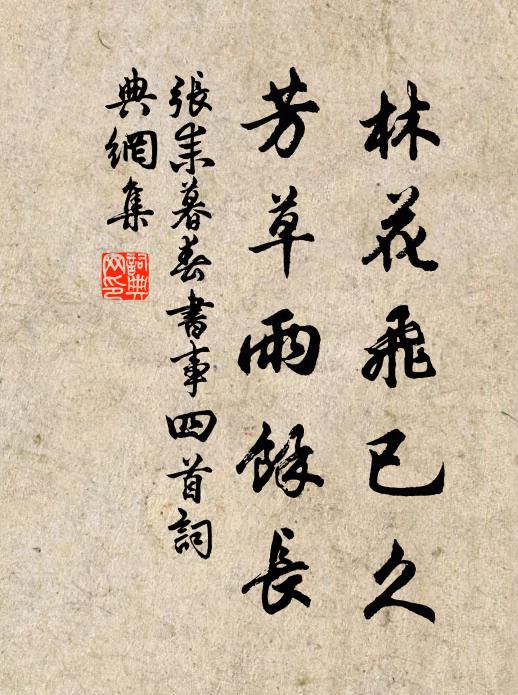 林花飛已久
芳草雨餘長
張耒暮春書事四首詞
典網集
詞典
网印